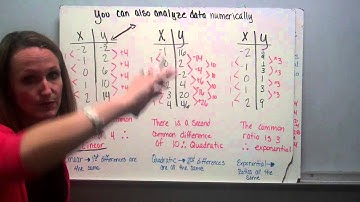 You can also analyze data numerically
X y
-2 -2
-1 2
0 6
1 10
2 14
+4
+4
+4
+4
Linear
X y
-1 16
0 2
2 4
3 20
4 46
-14
-4
+6
+16
+26
10
10
10
10
There is a second
common difference
of 10 ∴ Quadratic
X y
-2
-1 1/3
0 1
1 3
2 9
×3
×3
×3
×3
The common
ratio is 3
∴ exponential
Linear → 1st differences are
all the same
Quadratic → 2nd differences
are all the same
Exponential →
Ratios all the
same